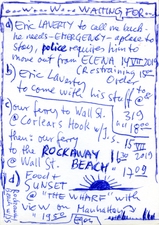 ...W...W... WAITING FOR...
a) Eric LAVERTY to call me back-
he needs-EMERGENCY-a place to
stay, police requires him to
move out from ELENA 14 VII 2019
(Restraining
Order)
b) Eric Laverty
to come with his stuff to @
c) our ferry to Wall St.
@ Corlears Hook
then: our ferry
to the ROCKAWAY
@ Wall St. BEACH
15 VII
2019
d) Food +
SUNSET
@ "THE WHARF" with
view on Manhattan
19